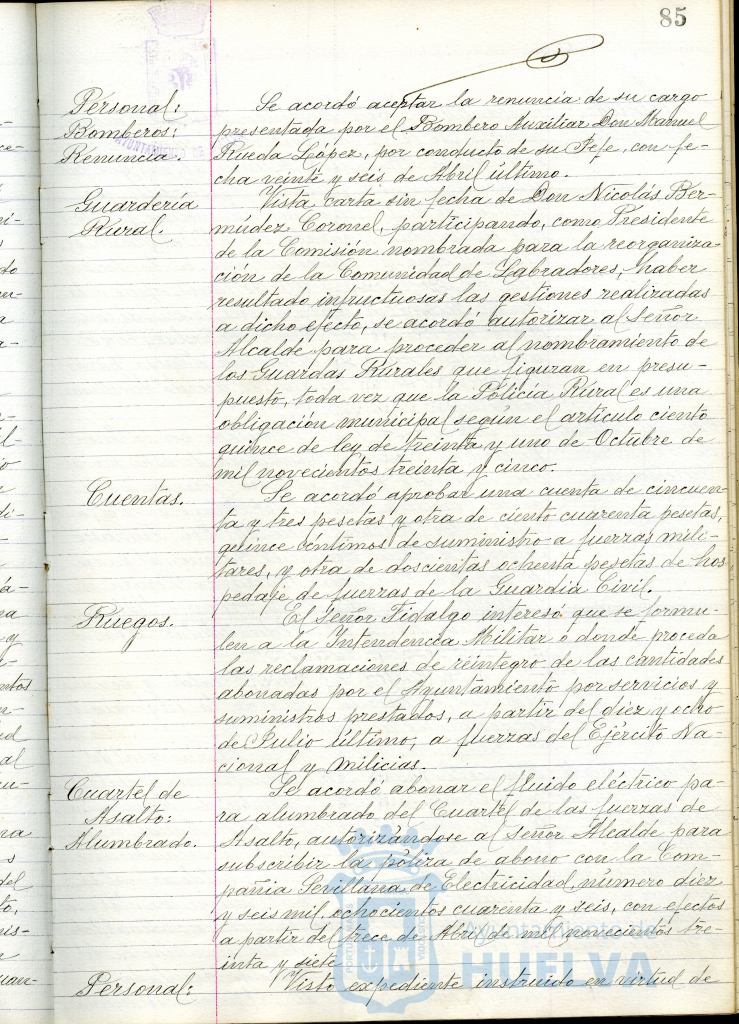 85
Personal:
Bomberos:
Renuncia.
Se acordó aceptar la renuncia de su cargo
presentada por el Bombero Auxiliar Don Manuel
Rueda López, por conducto de su Jefe, con fe-
cha veinte y seis de Abril último.
Guardería
Rural.
Vista carta sin fecha de Don Nicolás Ber-
múdez Coronel, participando, como Presidente
de la Comisión nombrada para la reorganiza-
ción de la Comunidad de Labradores, haber
resultado infructuosas las gestiones realizadas
a dicho efecto, se acordó autorizar al Señor
Alcalde para proceder al nombramiento de
los Guardas Rurales que figuran en presu-
puesto, toda vez que la Policía Rural es una
obligación municipal según el artículo ciento
quince de ley de treinta y uno de Octubre de
mil novecientos treinta y cinco.
Cuentas.
Se acordó aprobar una cuenta de cincuen-
ta y tres pesetas y otra de ciento cuarenta pesetas,
quince céntimos de suministro a fuerzas mili-
tares, y otra de doscientas ochenta pesetas de hos
pedaje de fuerzas de la Guardia Civil.
Ruegos.
El Señor Fidalgo interesó que se formu-
len a la Intendencia Militar o donde proceda
las reclamaciones de reintegro de las cantidades
abonadas por el Ayuntamiento por servicios y
suministros prestados, a partir del diez y ocho
de Julio último, a fuerzas del Ejército Na-
cional y milicias.
Cuartel de
Asalto:
Alumbrado.
Se acordó abonar el fluido eléctrico pa-
ra alumbrado del Cuartel de las fuerzas de
Asalto, autorizándose al Señor Alcalde para
subscribir la póliza de abono con la Com-
pañía Sevillana de Electricidad, número diez
y seis mil ochocientos cuarenta y seis, con efectos
a partir del trece de Abril de mil novecientos tre-
inta y siete.
Personal:
Visto expediente instruido en virtud de
Ayuntamiento
HUELVA